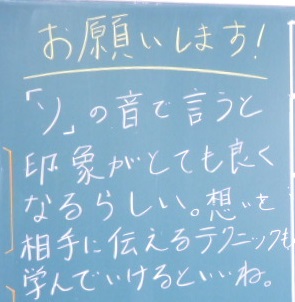 お願いします!
「ソ」の音で言うと
印象がとても良く
なるらしい。想いを
相手に伝えるテクニックも
学んでいけるといいね。